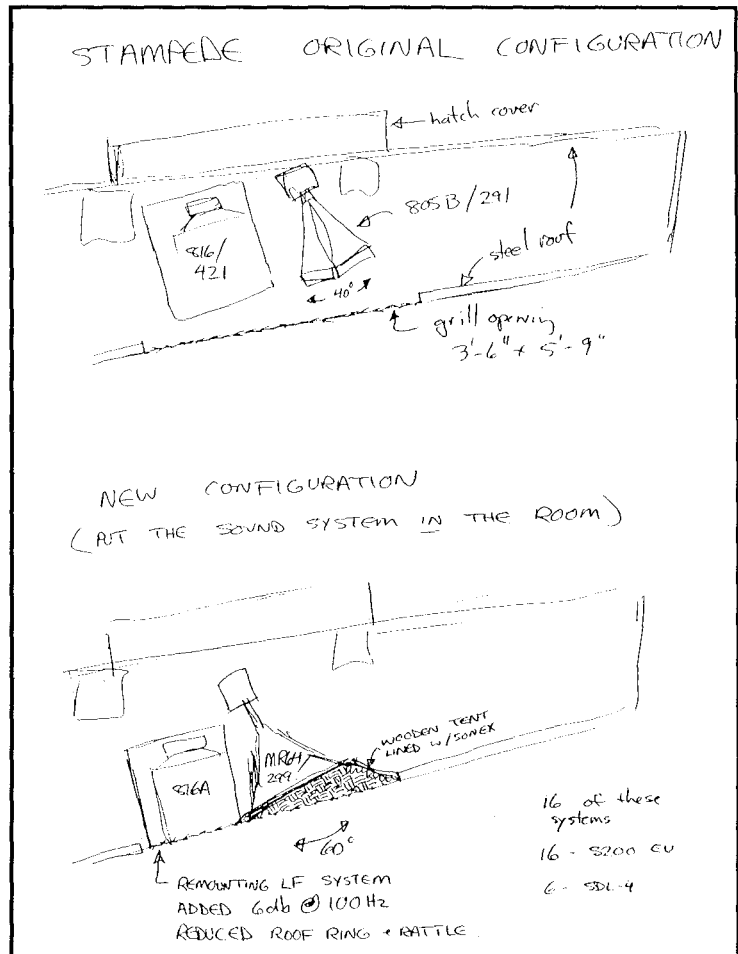 STAMPEDE ORIGINAL CONFIGURATION
hatch cover
805B/291
816/
421
40°
steel roof
grill opening
3'-6" x 5'-9"
NEW CONFIGURATION
(PUT THE SOUND SYSTEM IN THE ROOM)
WOODEN TENT
LINED W/SONEX
MR64/
299
816A
60°
16 of these
systems
16 - S200 EU
6 - SDL-4
REMOUNTING LF SYSTEM
ADDED 6db @ 100Hz
REDUCED ROOF RING + RATTLE